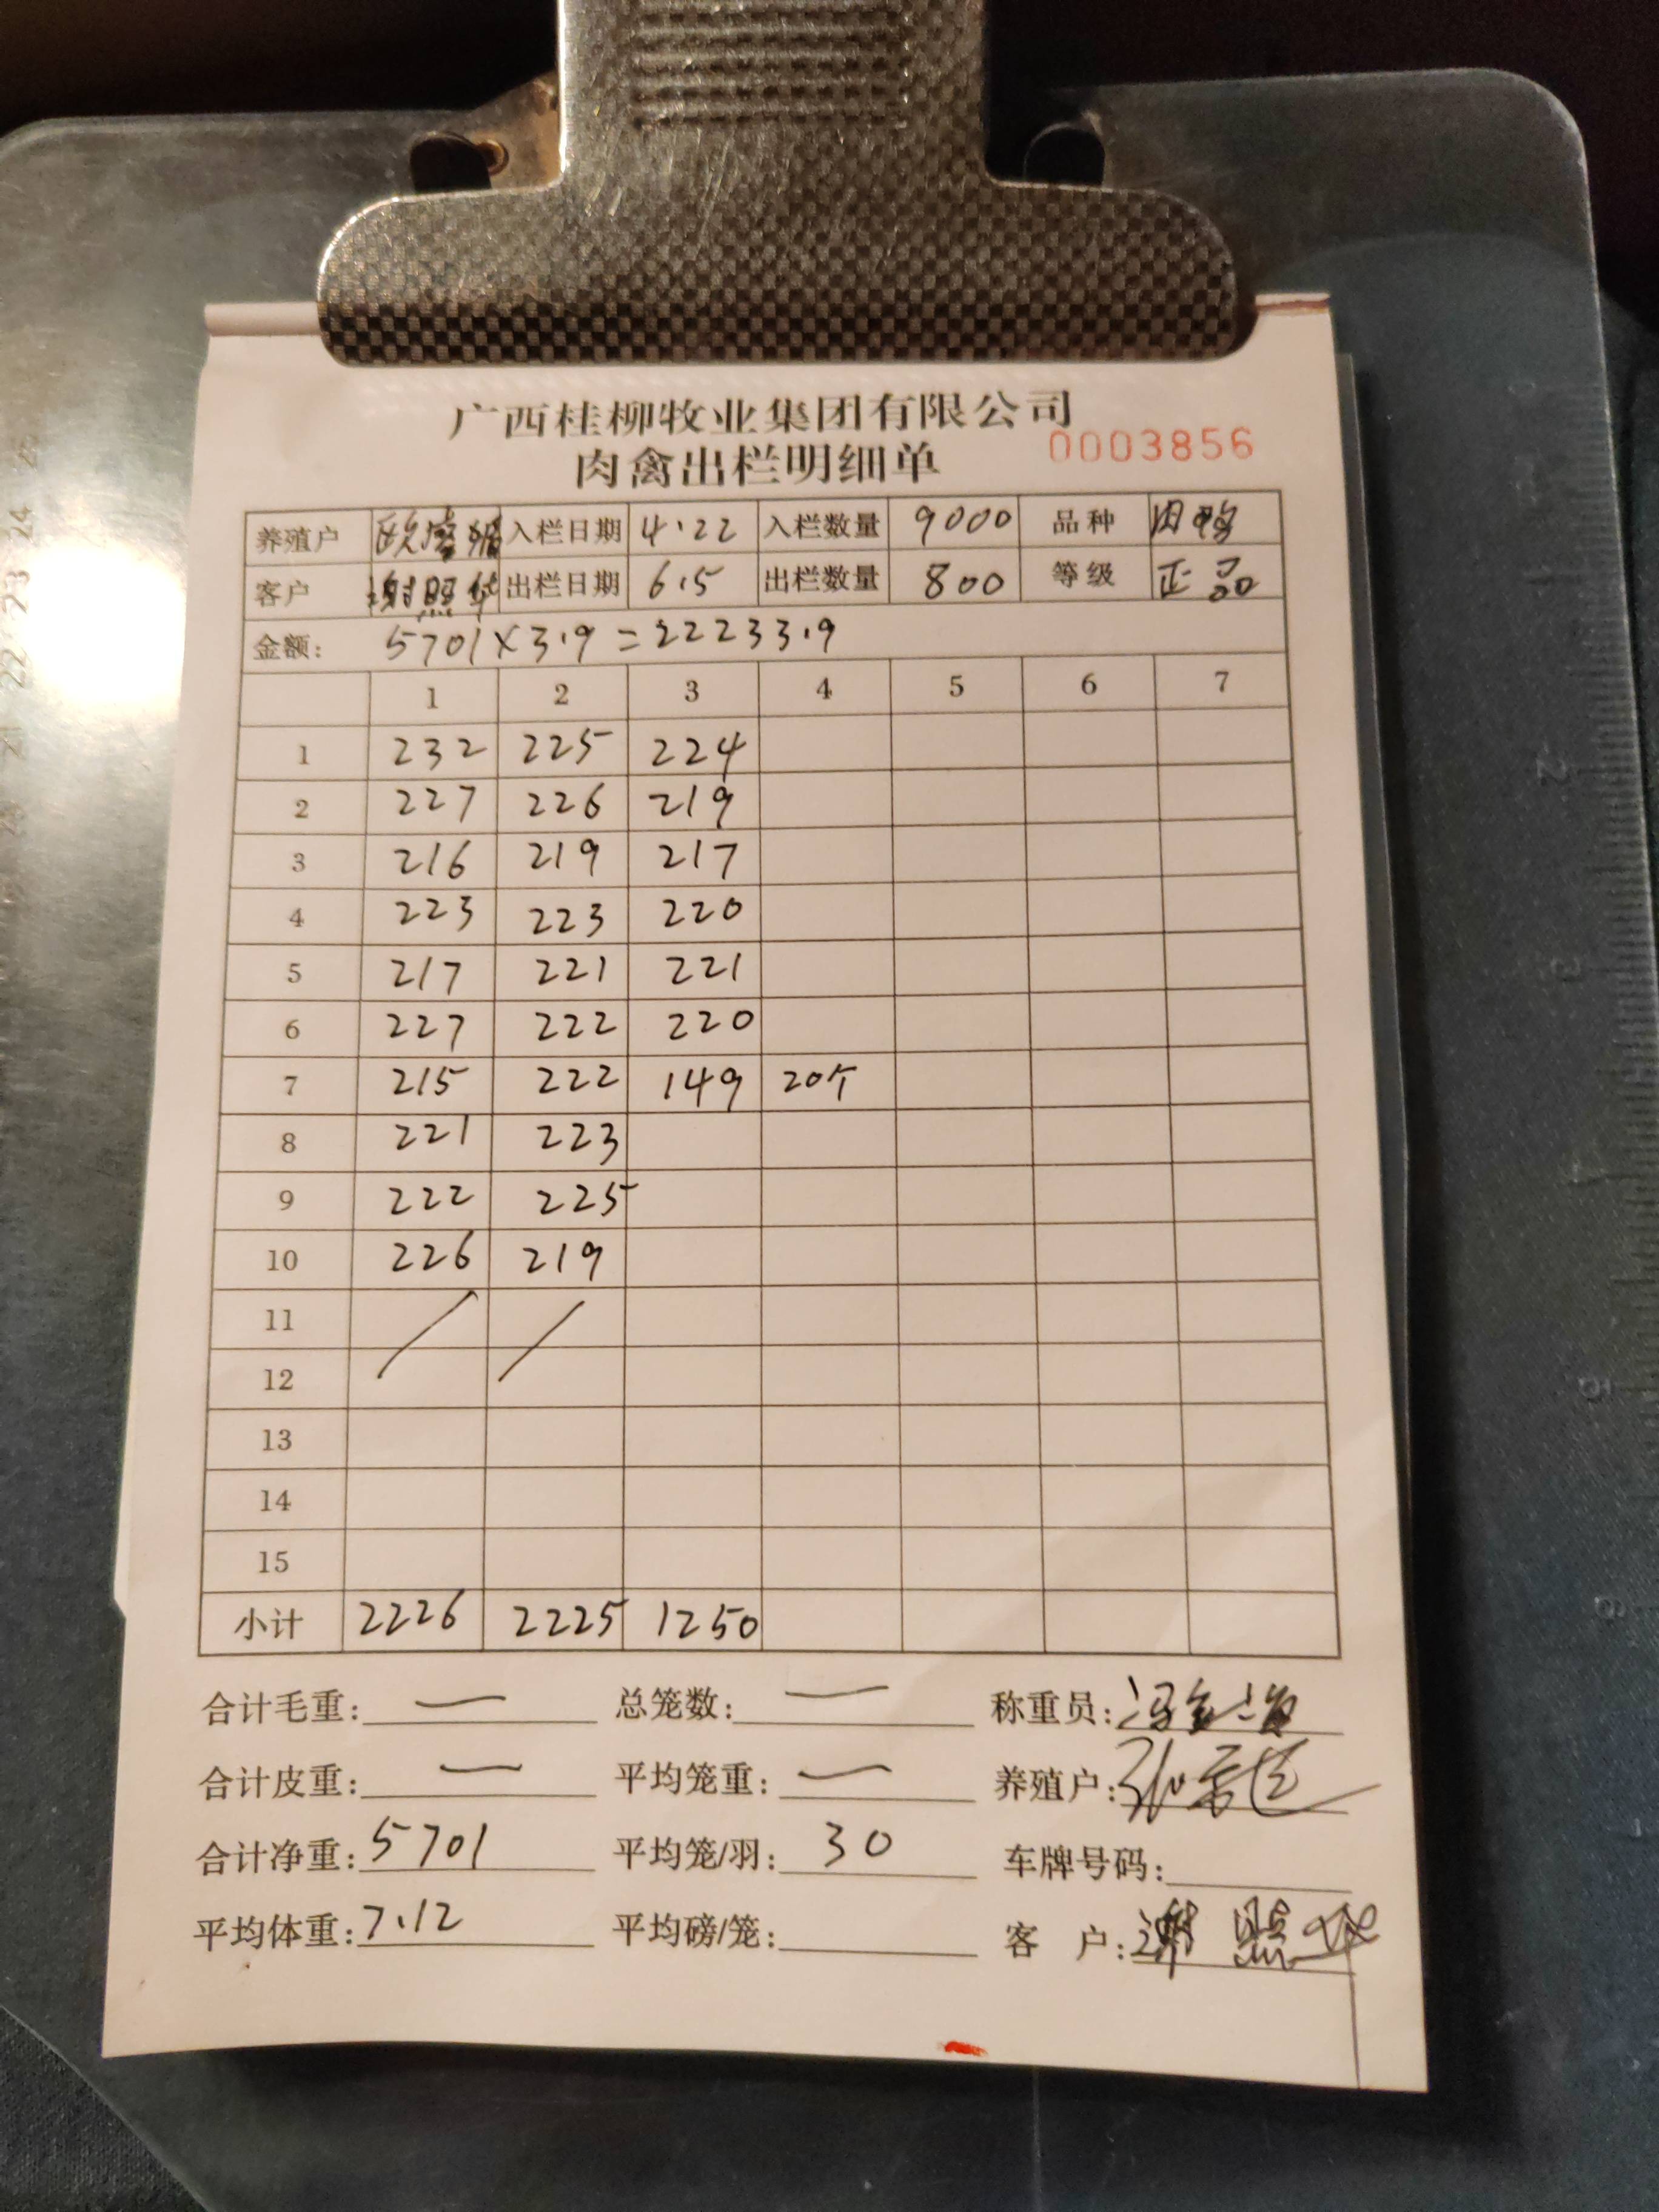 广西桂柳牧业集团有限公司
肉禽出栏明细单 0003856
养殖户 入栏日期 4.22 入栏数量 9000 品种 肉鸭
客户 谢照华 出栏日期 6.5 出栏数量 800 等级 正品
金额: 5701×3.9=22233.9
1 2 3 4 5 6 7
1 232 225 224
2 227 226 219
3 216 219 217
4 223 223 220
5 217 221 221
6 227 222 220
7 215 222 149 20个
8 221 223
9 222 225
10 226 219
11
12
13
14
15
小计 2226 2225 1250
合计毛重: — 总笼数: — 称重员:
合计皮重: — 平均笼重: — 养殖户:
合计净重: 5701 平均笼/羽: 30 车牌号码:
平均体重: 7.12 平均磅/笼: 客 户: 谢照华